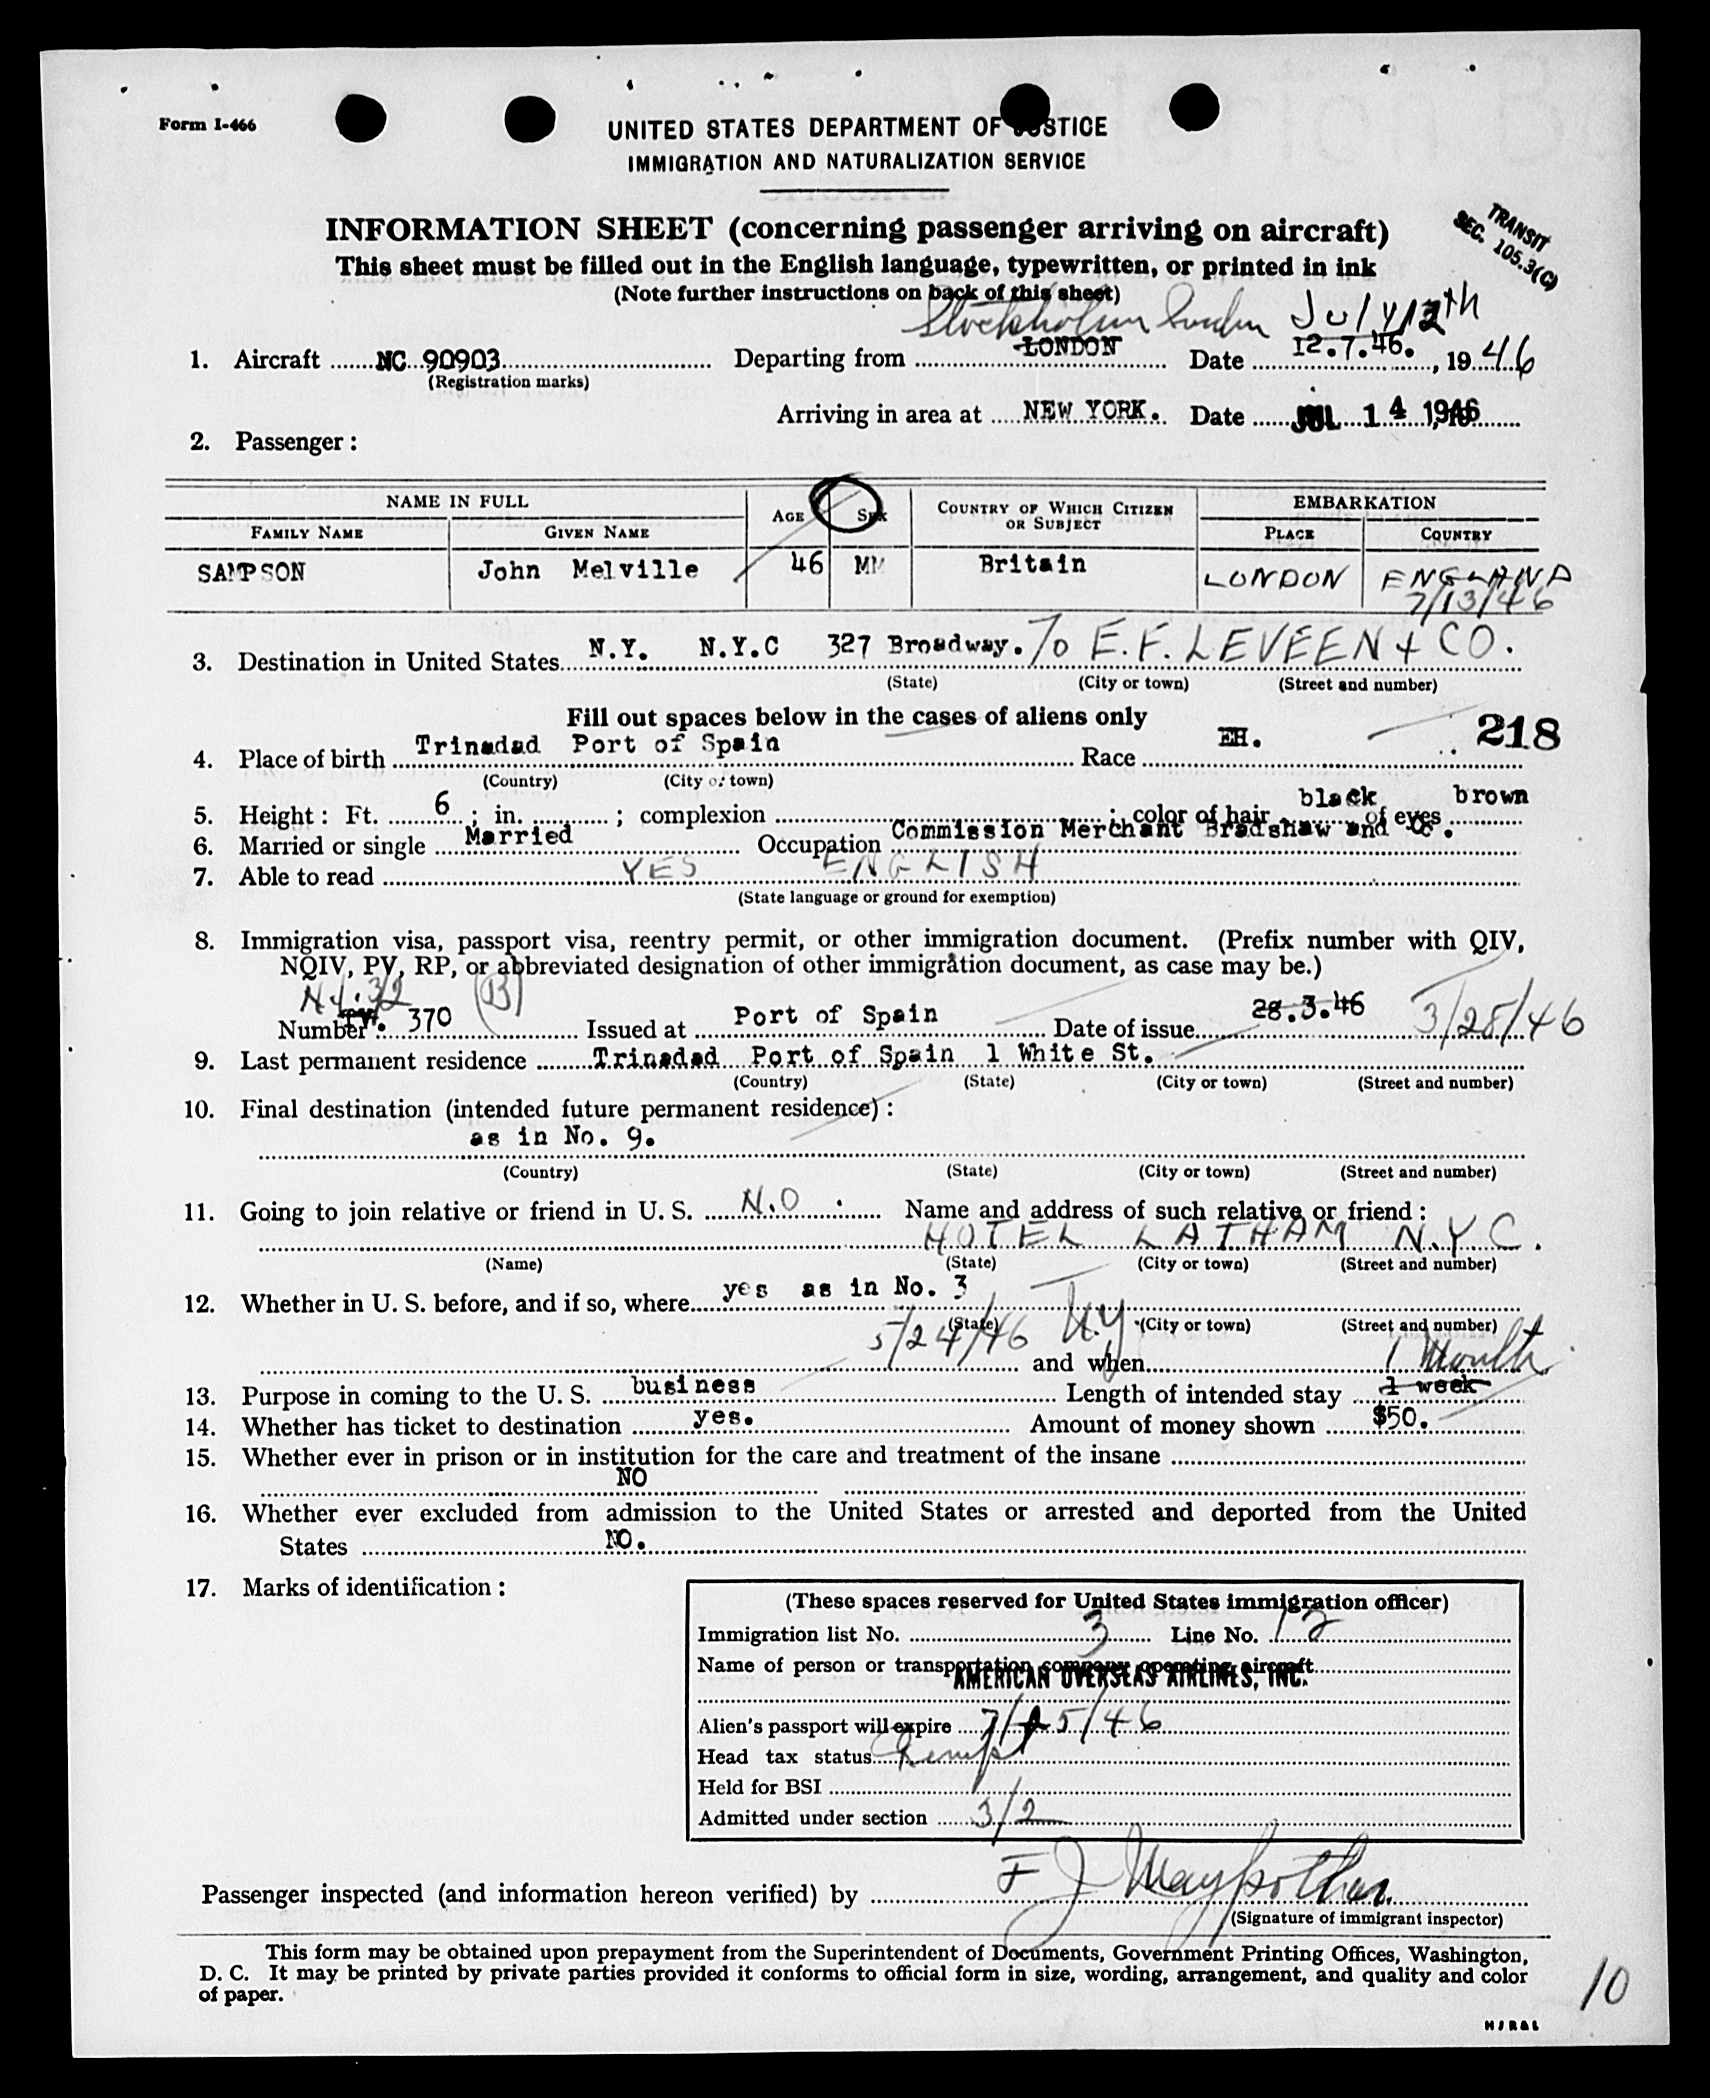 Form I-466
UNITED STATES DEPARTMENT OF JUSTICE
IMMIGRATION AND NATURALIZATION SERVICE
TRANSIT
SEC. 105.3(C)
INFORMATION SHEET (concerning passenger arriving on aircraft)
This sheet must be filled out in the English language, typewritten, or printed in ink
(Note further instructions on back of this sheet)
Stockholm Sweden July 12th
1. Aircraft NC 90903 Departing from LONDON Date 12.7.46. , 19 46
(Registration marks)
Arriving in area at NEW YORK. Date JUL 14 1946
2. Passenger :
NAME IN FULL AGE SEX COUNTRY OF WHICH CITIZEN OR SUBJECT EMBARKATION
FAMILY NAME GIVEN NAME PLACE COUNTRY
SAMPSON John Melville 46 M Britain LONDON ENGLAND
7/13/46
3. Destination in United States N.Y. N.Y.C 327 Broadway. % E.F. LEVEEN + CO.
(State) (City or town) (Street and number)
Fill out spaces below in the cases of aliens only
218
4. Place of birth Trinadad Port of Spain Race EH.
(Country) (City or town)
5. Height : Ft. 6 ; in. ; complexion ; color of hair black of eyes brown
6. Married or single Married Occupation Commission Merchant Bradshaw and Co.
7. Able to read YES ENGLISH
(State language or ground for exemption)
8. Immigration visa, passport visa, reentry permit, or other immigration document. (Prefix number with QIV,
NQIV, PV, RP, or abbreviated designation of other immigration document, as case may be.)
(B)
Number 370 Issued at Port of Spain Date of issue 28.3.46 3/28/46
9. Last permanent residence Trinadad Port of Spain 1 White St.
(Country) (State) (City or town) (Street and number)
10. Final destination (intended future permanent residence) :
as in No. 9.
(Country) (State) (City or town) (Street and number)
11. Going to join relative or friend in U. S. N.O Name and address of such relative or friend :
HOTEL LATHAM N.Y.C.
(Name) (State) (City or town) (Street and number)
12. Whether in U. S. before, and if so, where yes as in No. 3
(State) (City or town) (Street and number)
5/24/46 N.Y. and when 1 Month
13. Purpose in coming to the U. S. business Length of intended stay 1 week
14. Whether has ticket to destination yes. Amount of money shown $50.
15. Whether ever in prison or in institution for the care and treatment of the insane
NO
16. Whether ever excluded from admission to the United States or arrested and deported from the United
States NO.
17. Marks of identification :
(These spaces reserved for United States immigration officer)
Immigration list No. 3 Line No. 12
Name of person or transportation company operating aircraft
AMERICAN OVERSEAS AIRLINES, INC.
Alien's passport will expire 7/ 5/46
Head tax status
Held for BSI
Admitted under section 3/2
Passenger inspected (and information hereon verified) by F J
(Signature of immigrant inspector)
This form may be obtained upon prepayment from the Superintendent of Documents, Government Printing Offices, Washington,
D. C. It may be printed by private parties provided it conforms to official form in size, wording, arrangement, and quality and color
of paper.
10